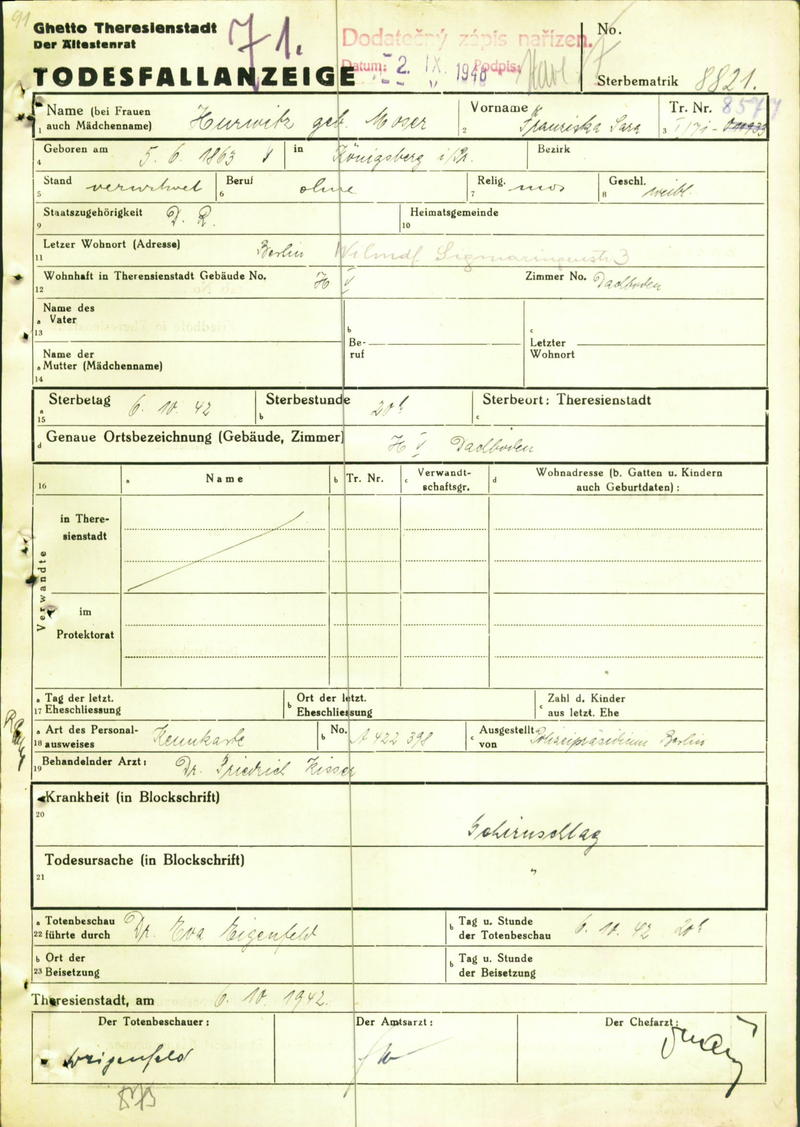 91
Ghetto Theresienstadt
Der Ältestenrat
71.
Dodatečný zápis nařízen.
Datum: 2. IX. 1948 Podpis:
No.
TODESFALLANZEIGE
Sterbematrik 8821.
Name (bei Frauen
1 auch Mädchenname) Hurwitz geb. Moser
Vorname
2 Franziska Sara
Tr. Nr. 8577
3 I/71-
Geboren am
4 5. 6. 1863
in Königsberg i/Pr.
Bezirk
Stand
5 verwitwet
Beruf
6 ohne
Relig.
7 mos
Geschl.
8 weibl.
Staatszugehörigkeit
9 D. R.
Heimatsgemeinde
10
Letzer Wohnort (Adresse)
11 Berlin Wilmdf. Sigmaringenstr 3
Wohnhaft in Therensienstadt Gebäude No.
12 H V
Zimmer No. Dachboden
Name des
a Vater
13
b
Be-
ruf
c
Letzter
Wohnort
Name der
a Mutter (Mädchenname)
14
a Sterbetag
15 6. 10. 42
Sterbestunde
b 20h
Sterbeort: Theresienstadt
c
d Genaue Ortsbezeichnung (Gebäude, Zimmer) H V Dachboden
16
a Name
b Tr. Nr.
c Verwandt-
schaftsgr.
d Wohnadresse (b. Gatten u. Kindern
auch Geburtdaten) :
Verwandte
in There-
sienstadt
im
Protektorat
a Tag der letzt.
17 Eheschliessung
b Ort der letzt.
Eheschliessung
c Zahl d. Kinder
aus letzt. Ehe
a Art des Personal-
18 ausweises Kennkarte
b No. A 422 398
c Ausgestellt
von Polizeipräsidium Berlin
19 Behandelnder Arzt: Dr. Friedrich Kisser
Krankheit (in Blockschrift)
20
Gehirnschlag
Todesursache (in Blockschrift)
21
"
a Totenbeschau
22 führte durch Dr. Eva Eigenfeld
b Tag u. Stunde
der Totenbeschau 6. 10. 42 20h
b Ort der
23 Beisetzung
b Tag u. Stunde
der Beisetzung
Theresienstadt, am 6. 10. 1942.
Der Totenbeschauer:
Der Amtsarzt:
Der Chefarzt: